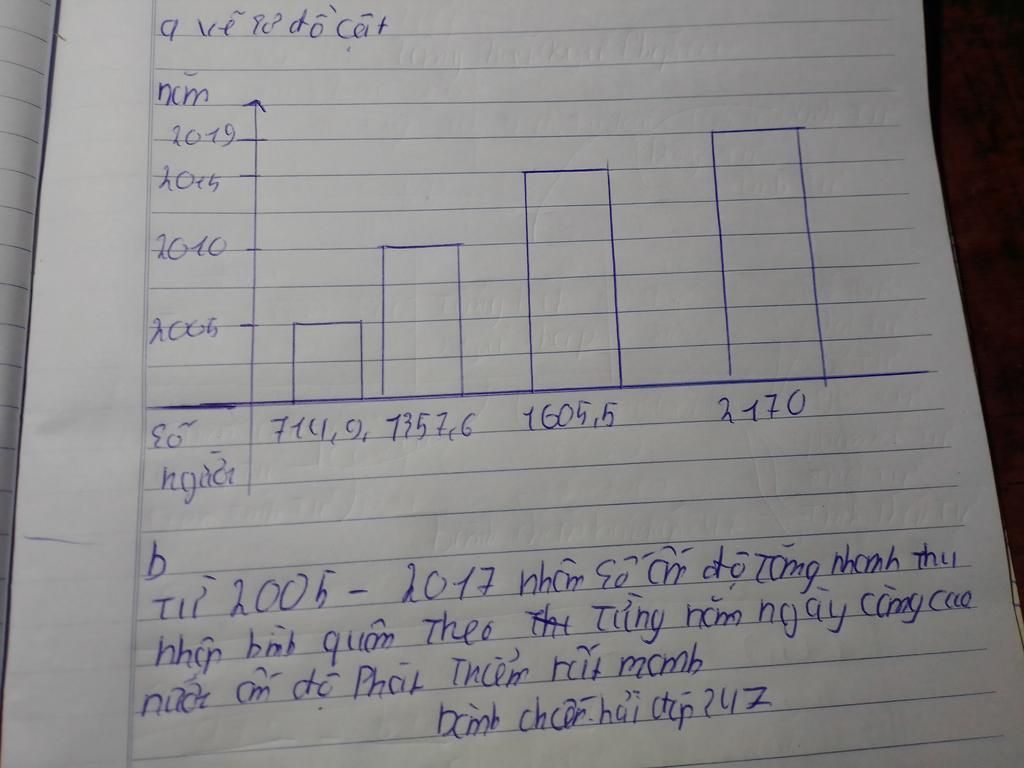 a vẽ sơ đồ cột
năm
2019
2015
2010
2005
714,9, 1357,6 1605,5 2170
số
người
b
Từ 2005 - 2017 nhân số ấn độ tăng nhanh thu
nhập bình quân theo từng năm ngày càng cao
nước ấn độ Phát Triển rất mạnh
hỏi đáp 247